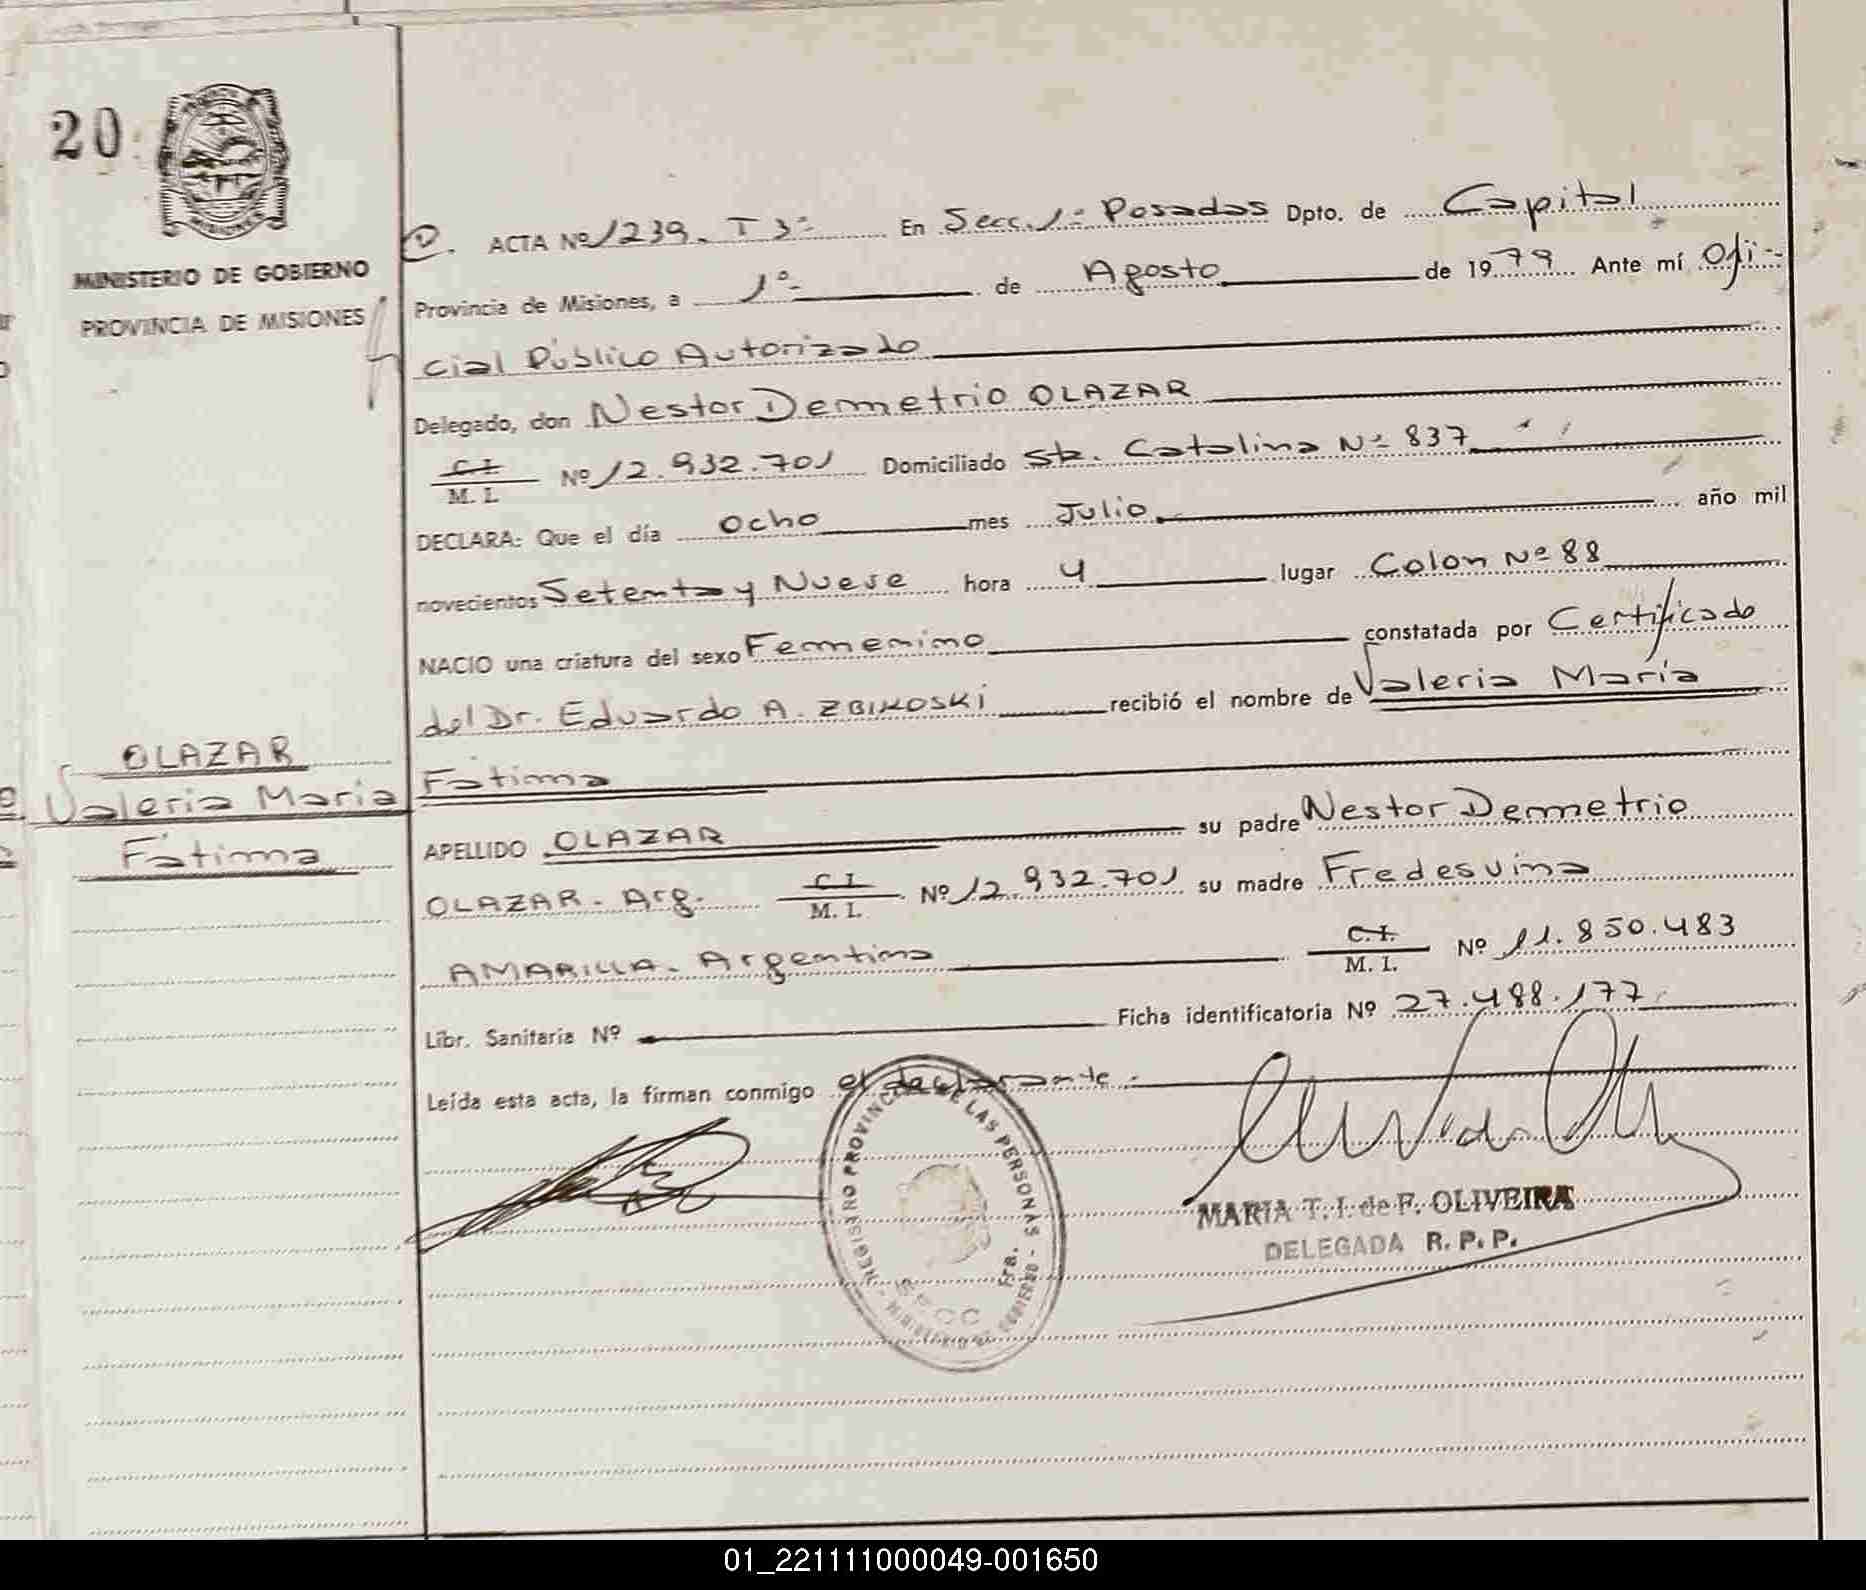 20
MINISTERIO DE GOBIERNO
PROVINCIA DE MISIONES
OLAZAR
Valeria Maria
Fatima
ACTA Nº 1239. T 3º En Secc. 1º Posadas Dpto. de Capital
Provincia de Misiones, a 1º de Agosto de 1979 Ante mí Ofi-
cial Público Autorizado
Delegado, don Nestor Demetrio OLAZAR
C.I. M. I. Nº 12.932.701 Domiciliado Sta. Catalina Nº 837
DECLARA: Que el día ocho mes Julio año mil
novecientos Setenta y Nueve hora 4 lugar Colon Nº 88
NACIO una criatura del sexo Femenino constatada por Certificado
del Dr. Eduardo A. ZBIKOSKI recibió el nombre de Valeria María
Fátima
APELLIDO OLAZAR su padre Nestor Demetrio
OLAZAR - Arg. C.I. M. I. Nº 12.932.701 su madre Fredesvina
AMARILLA - Argentina C.I. M. I. Nº 11.850.483
Libr. Sanitaria Nº Ficha identificatoria Nº 27.488.177
Leída esta acta, la firman conmigo el declarante.
REGISTRO PROVINCIAL DE LAS PERSONAS - MINISTERIO DE GOBIERNO -
Secc. 1ra.
MARIA T. I. de F. OLIVEIRA
DELEGADA R. P. P.
01_221111000049-001650